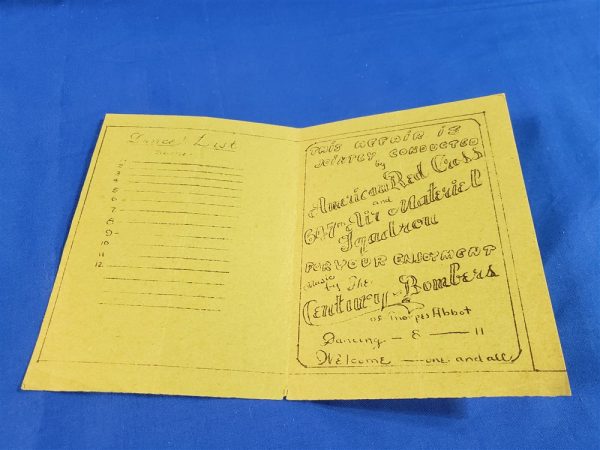 Dance List
Name
1
2
3
4
5
6
7
8
9
10
11
12
THIS AFFAIR IS
JOINTLY CONDUCTED
by
American Red Coss
and
647th Air Materiel
Squadron
FOR YOUR ENJOYMENT
Music by The
Century Bombers
of Thorpes Abbot
Dancing - 8 — 11
Welcome — one and all